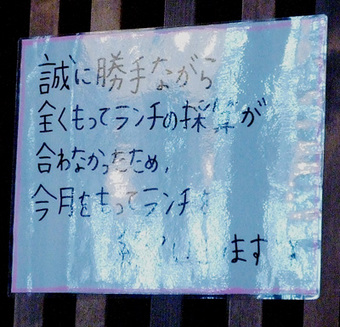 誠に勝手ながら
全くもってランチの採算が
合わなかったため,
今月をもってランチを
ます